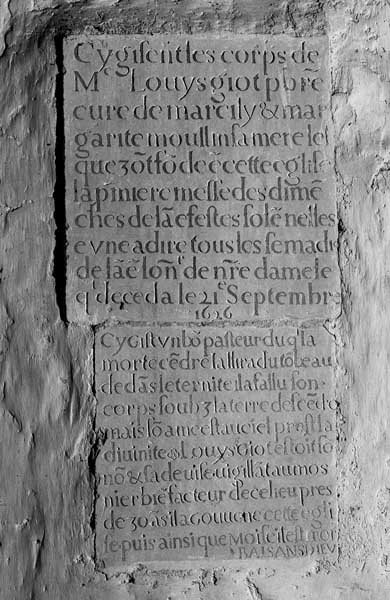 Cy gisent les corps de
Me Louys giot pbr̄e
cure de marcily & mar
garite moullin sa mere les
que 3 ōt fō de ē cette eglise
la p̄miere messe des dimē
ches de lā e festes solēnelles
e vne a dire tous les samadi
de lāē lōnr̄ de nr̄e dame le
ql deceda le 21e Septembre
1626
cy gist vn bō pasteur du ql la
morte cēdre saillira du tōbeau
de dās l'eternite il a fallu son
corps soub 3 la terre descēdre
mais lō ame est au ciel pres la
divinite Louys giot estoit so
nō & sa devise vigillāt aumos
nier biēfacteur de ce lieu pres
de 30 ās il a gouverne cette egli
se puis ainsi que Moise il est mor
BAISANS DIEV